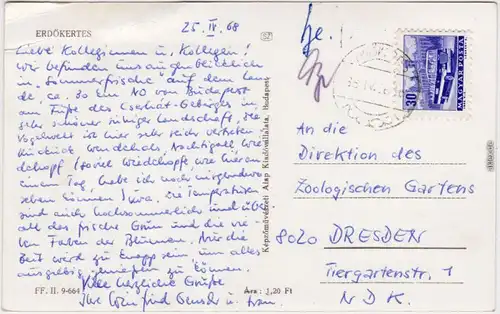 ERDŐKERTES
25. IV. 68
Liebe Kolleginnen u. Kollegen!
wir befinden uns augenblicklich
in "Sommerfrische" auf dem Lan-
de, ca. 30 km NO von Budapest
am Fuße des Cserhát-Gebirges in
sehr schöner ruhiger Landschaft, die
Vogelwelt ist hier sehr reich vertreten
Kuckuck, Wendehals, Nachtigall, Wie-
dehopf (soviel Wiedehopfe, wie hier an
einem Tag, habe ich noch nirgendwo
sehen können) usw. Die Temperaturen
sind auch hochsommerlich und über
all das frische Grün und die vie-
len Farben der Blumen. Nur die
Zeit wird zu knapp sein, um alles
ausgiebig genießen zu können.
Viele herzliche Grüße
Ihre u. Frau.
FF. II. 9-664
Ára: 1,20 Ft
Képzőművészeti Alap Kiadóvállalata, Budapest
30
MAGYAR POSTA
An die
Direktion des
Zoologischen Gartens
8020 DRESDEN
Tiergartenstr. 1
NDK.